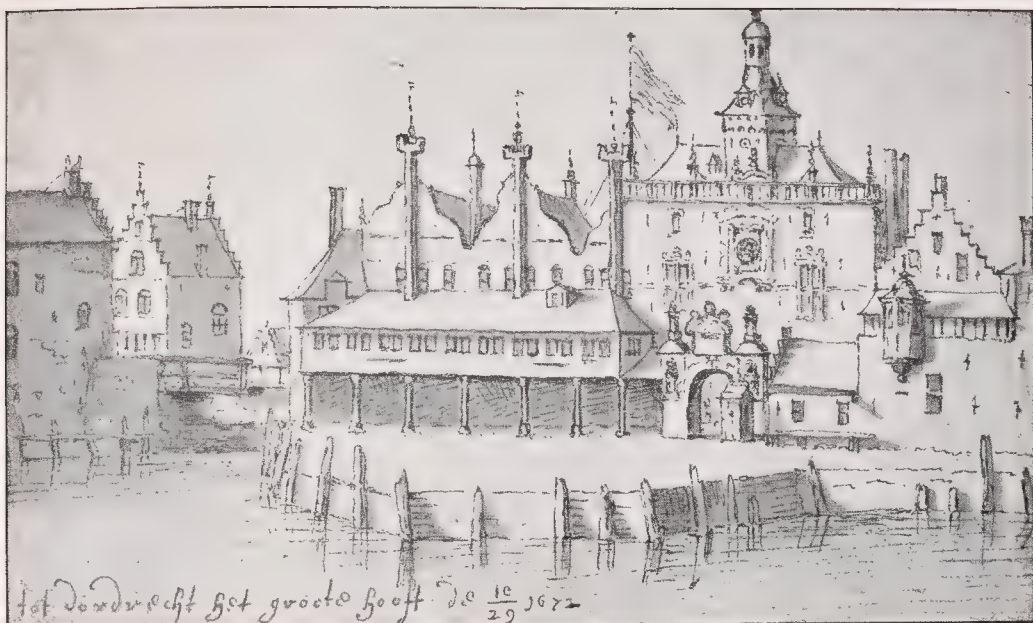 tot dordrecht het groote hooft de 10/29 1672